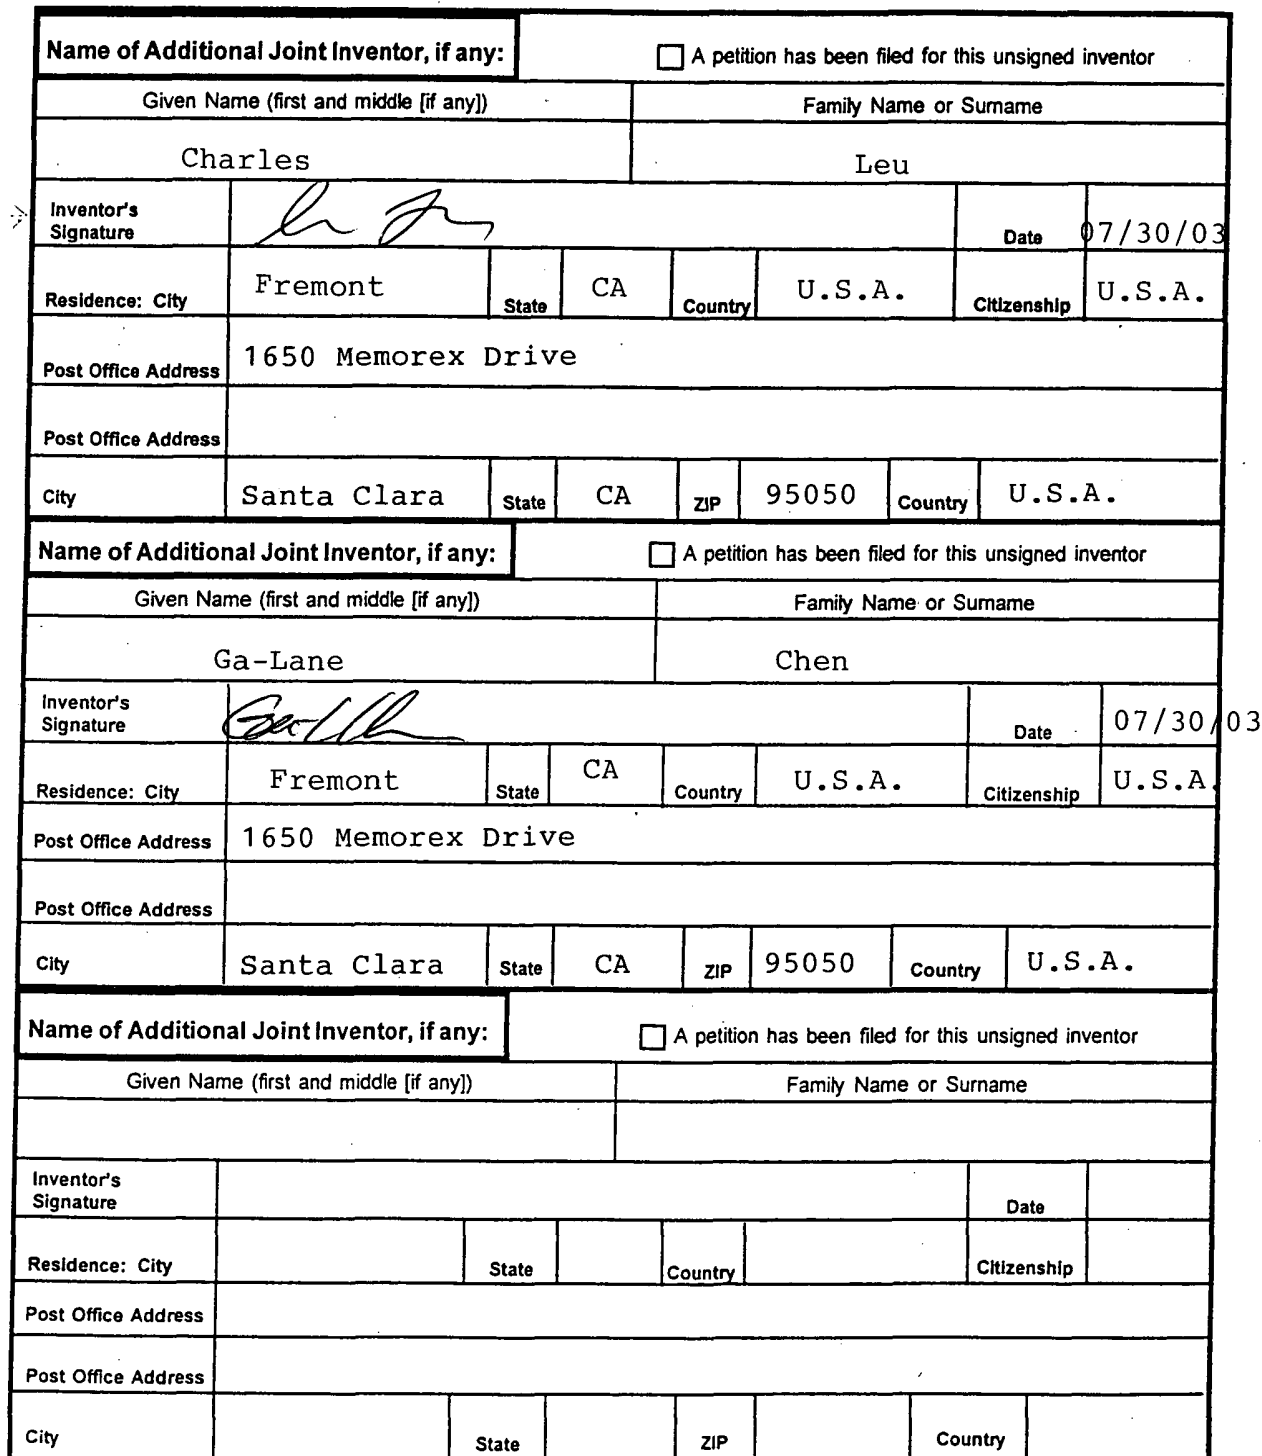 Name of Additional Joint Inventor, if any: A petition has been filed for this unsigned inventor
Given Name (first and middle [if any]) Family Name or Surname
Charles Leu
Inventor's
Signature Date 07/30/03
Residence: City Fremont State CA Country U.S.A. Citizenship U.S.A.
Post Office Address 1650 Memorex Drive
Post Office Address
City Santa Clara State CA ZIP 95050 Country U.S.A.
Name of Additional Joint Inventor, if any: A petition has been filed for this unsigned inventor
Given Name (first and middle [if any]) Family Name or Surname
Ga-Lane Chen
Inventor's
Signature Date 07/30/03
Residence: City Fremont State CA Country U.S.A. Citizenship U.S.A.
Post Office Address 1650 Memorex Drive
Post Office Address
City Santa Clara State CA ZIP 95050 Country U.S.A.
Name of Additional Joint Inventor, if any: A petition has been filed for this unsigned inventor
Given Name (first and middle [if any]) Family Name or Surname
Inventor's
Signature Date
Residence: City State Country Citizenship
Post Office Address
Post Office Address
City State ZIP Country